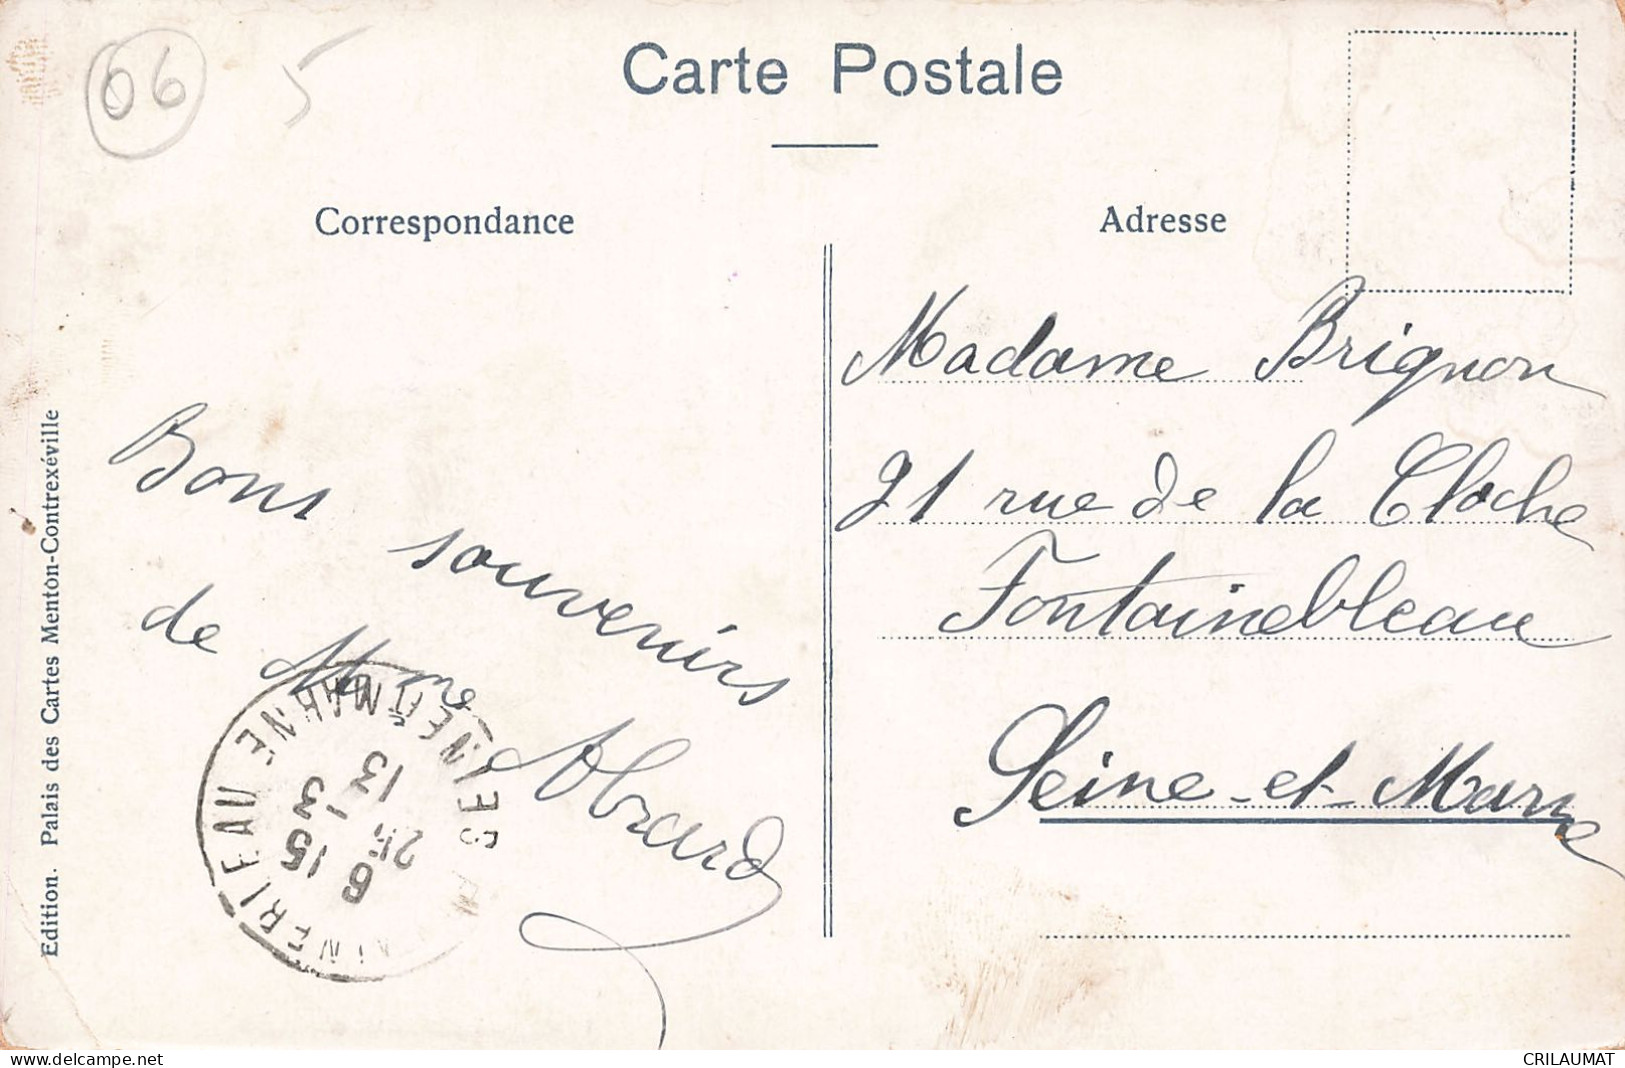 66 5
Carte Postale
Correspondance
Adresse
Bons souvenirs
de Mme Abrard
Madame Brignon
21 rue de la Cloche
Fontainebleau
Seine-et-Marne
Edition. Palais des Cartes Menton-Contrexéville
SEINE ET MARNE
6 15
25 - 3
13
www.delcampe.net
CRILAUMAT